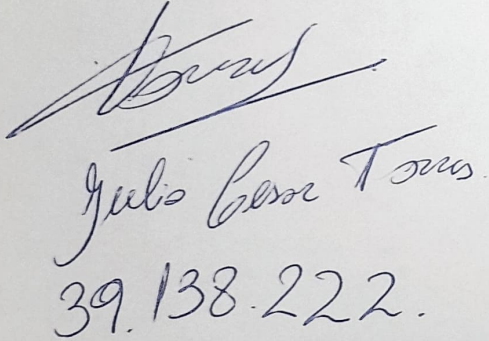 Torres
Julio Cesar Torres
39.138.222.